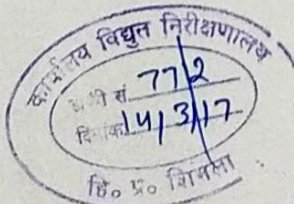 कार्यालय विद्युत निरीक्षणालय
सं 772
दिनांक 14/3/17
हि० प्र० शिमला